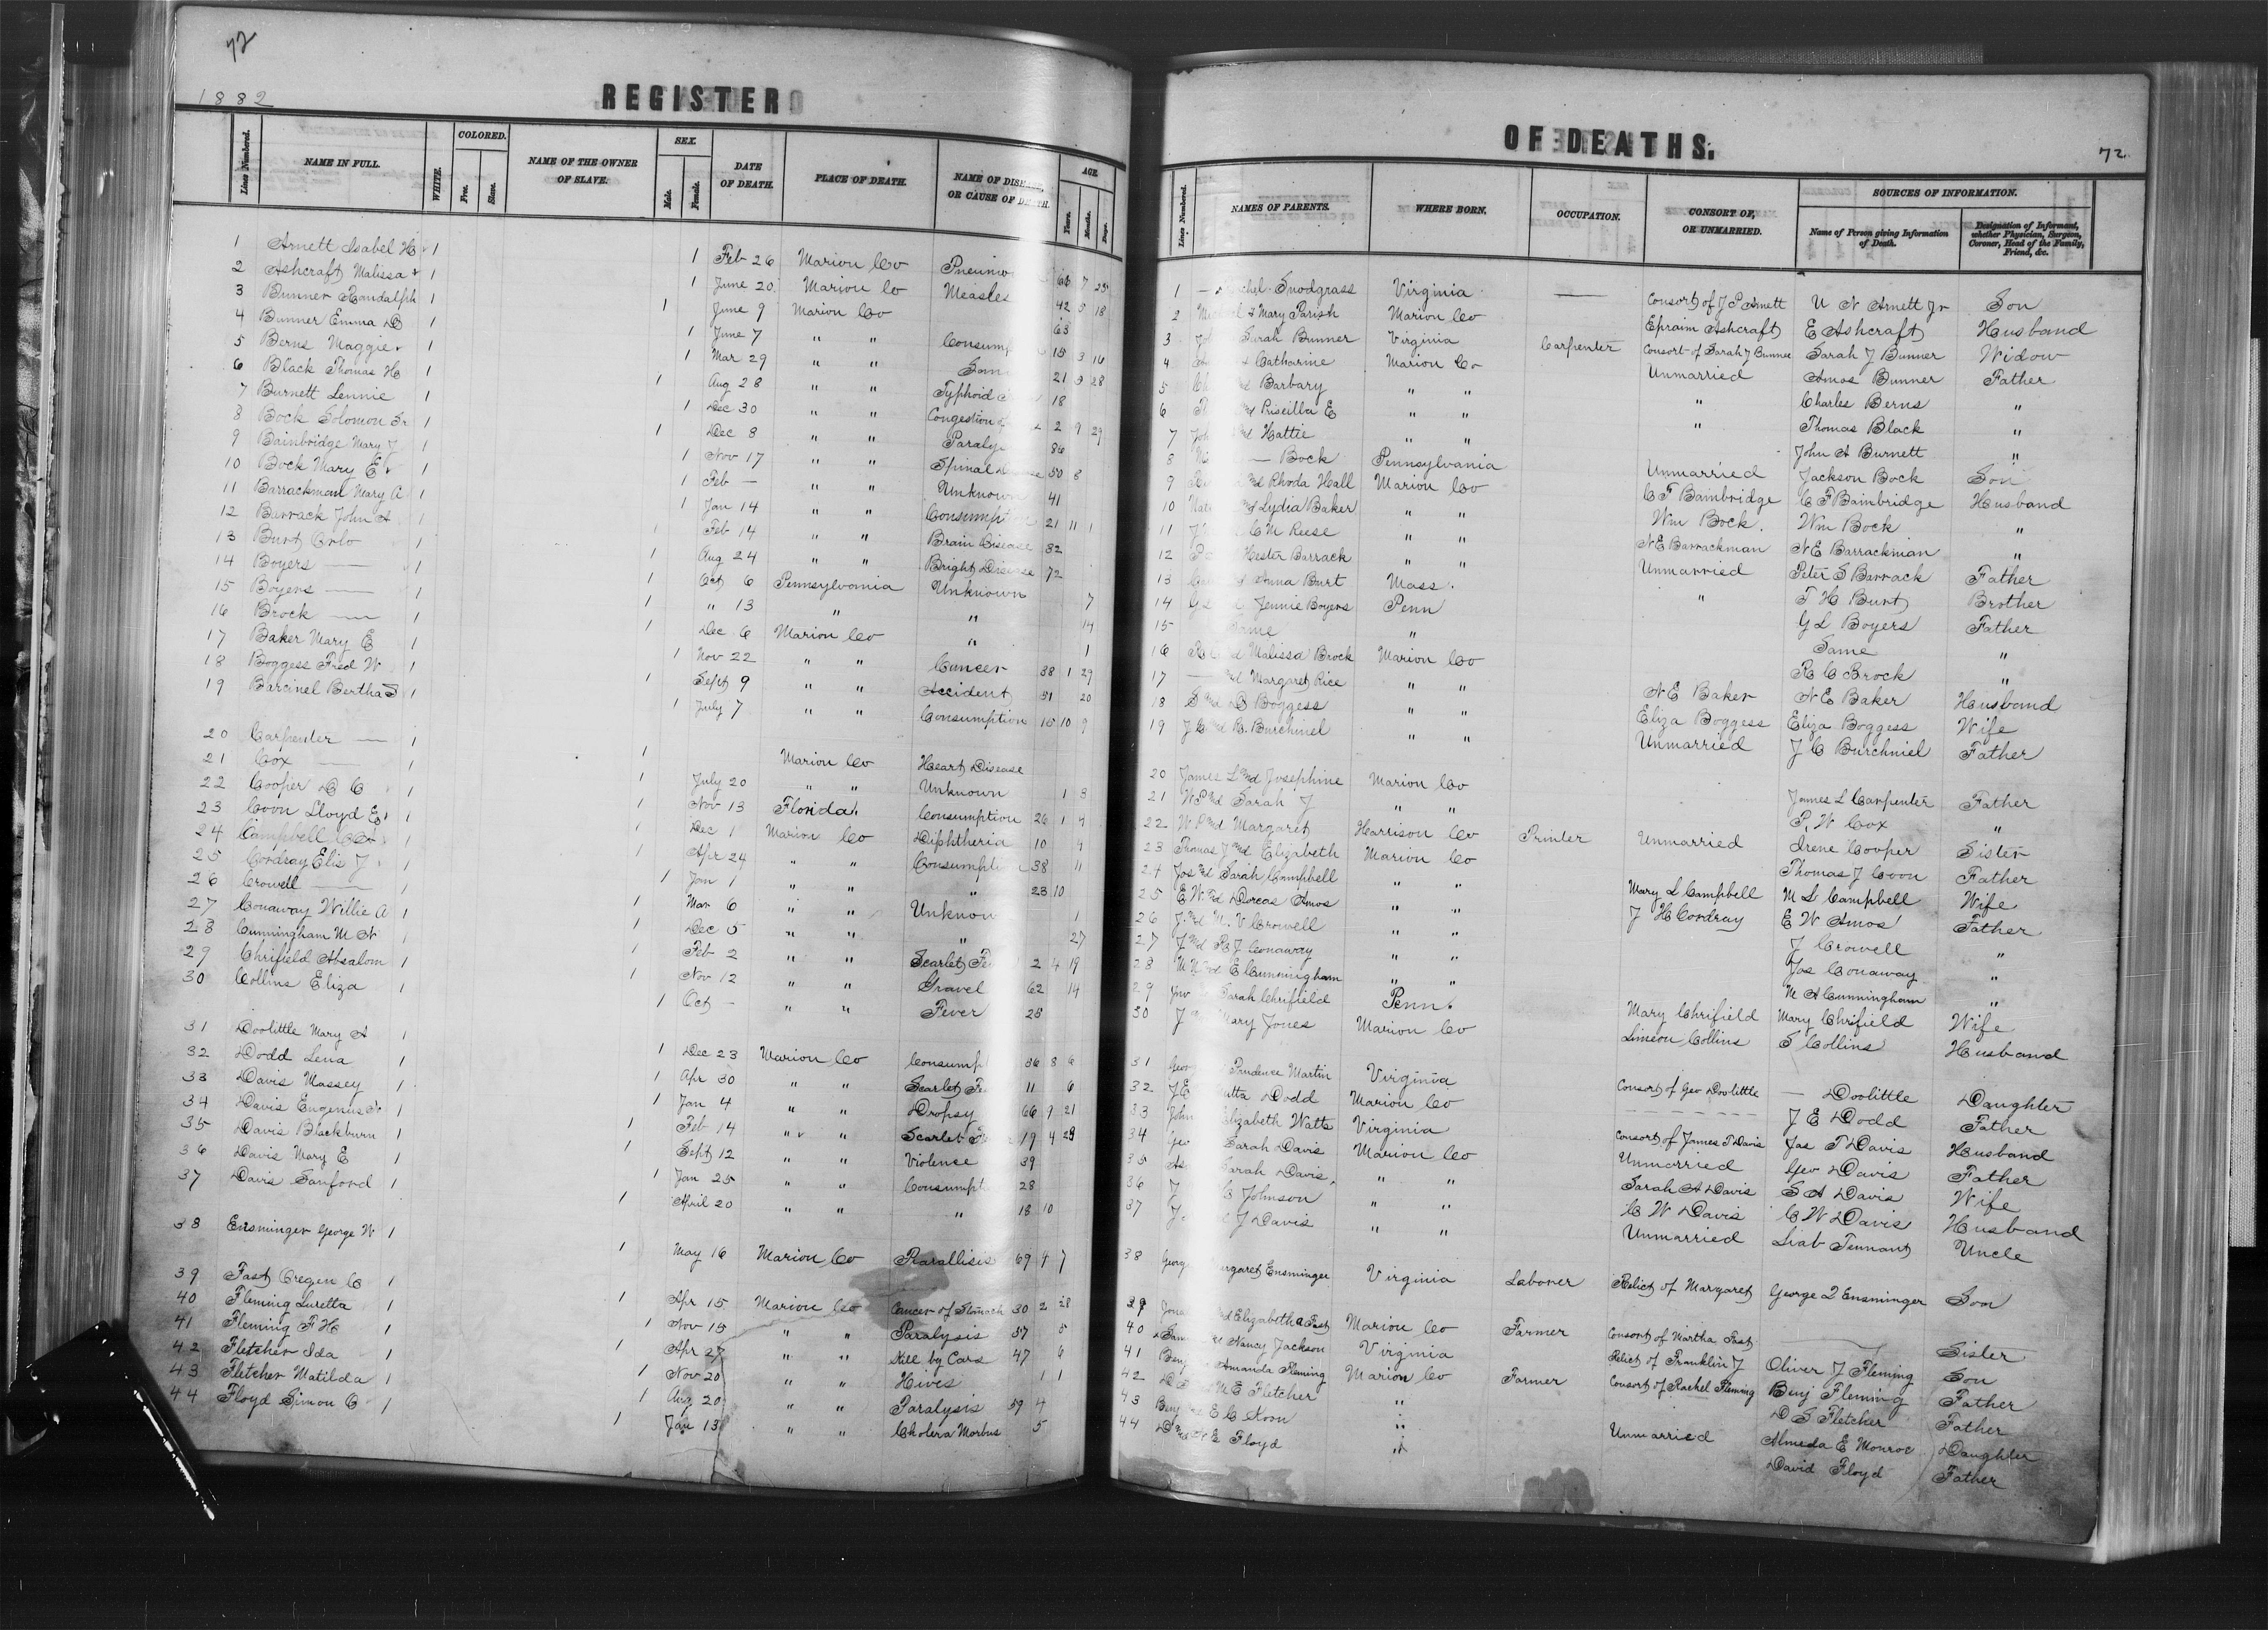 72
1882
REGISTER
Lines Numbered. NAME IN FULL. WHITE. COLORED. Free. Slave. NAME OF THE OWNER OF SLAVE. SEX. Male. Female. DATE OF DEATH. PLACE OF DEATH. NAME OF DISEASE, OR CAUSE OF DEATH. AGE. Years. Months. Days.
1 Arnett Isabel H 1 1 Feb 26 Marion Co Pneumo 66 7 25
2 Ashcraft Malissa 1 1 June 20 Marion Co Measles 42 5 18
3 Bunner Randalph 1 1 June 9 Marion Co 63
4 Bunner Emma D 1 1 June 7 " " Consump 15 3 16
5 Berns Maggie 1 1 Mar 29 " " Sam 21 9 28
6 Black Thomas H 1 1 Aug 28 " " Typhoid 18
7 Burnett Lennie 1 1 Dec 30 " " Congestion of 2 9 29
8 Bock Solomon Sr 1 1 Dec 8 " " Paraly 86
9 Bainbridge Mary J 1 1 Nov 17 " " Spinal Disease 50 8
10 Bock Mary E 1 1 Feb — " " Unknown 41
11 Barrackman Mary A 1 1 Jan 14 " " Consumpt 21 11 1
12 Barrack John A 1 1 Feb 14 " " Brain Disease 32
13 Burt Orlo 1 1 Aug 24 " " Bright Disease 72
14 Boyers — 1 1 Oct 6 Pennsylvania Unknown 7
15 Boyers — 1 1 " 13 " " 14
16 Brock — 1 1 Dec 6 Marion Co " 1
17 Baker Mary E 1 1 Nov 22 " " Cancer 38 1 29
18 Boggess Fred W 1 1 Sept 9 " " Accident 51 20
19 Barcinel Bertha S 1 1 July 7 " " Consumption 15 10 9
20 Carpenter — 1 1 Marion Co Heart Disease
21 Cox — 1 1 July 20 " " Unknown 1 3
22 Cooper D C 1 1 Nov 13 Florida Consumption 26 1 4
23 Coon Lloyd E 1 1 Dec 1 Marion Co Diphtheria 10 4
24 Campbell 1 1 Apr 24 " " Consumpti 38 11
25 Cordray Elis J 1 1 Jan 1 " " " 23 10
26 Crowell — 1 1 Mar 6 " " Unknow 1
27 Conaway Willie A 1 1 Dec 5 " " " 27
28 Cunningham M N 1 1 Feb 2 " " Scarlet Fe 2 4 19
29 Chrifield Absalom 1 1 Nov 12 " " Gravel 62 14
30 Collins Eliza 1 1 Oct — " " Fever 25
31 Doolittle Mary A 1 1 Dec 23 Marion Co Consump 36 8 6
32 Dodd Lena 1 1 Apr 30 " " Scarlet Fe 11 6
33 Davis Massey 1 1 Jan 4 " " Dropsy 66 9 21
34 Davis Eugenus 1 1 Feb 14 " " Scarlet F 19 4 29
35 Davis Blackburn 1 1 Sept 12 " " Violence 39
36 Davis Mary E 1 1 Jan 25 " " Consumpt 28
37 Davis Sanford 1 1 April 20 " " " 18 10
38 Ensminger George W 1 1 May 16 Marion Co Parallisis 69 4 7
39 Fast Oregen C 1 1 Apr 15 Marion Co Cancer of Stomach 30 2 28
40 Fleming Luretta 1 1 Nov 15 " " Paralysis 57 5
41 Fleming F H 1 1 Apr 27 " " Kill by Cars 47 6
42 Fletcher Ida 1 1 Nov 20 " " Hives 1 1
43 Fletcher Matilda 1 1 Aug 20 " " Paralysis 59 4
44 Floyd Simon C 1 1 Jan 13 " " Cholera Morbus 5
OF DEATHS.
72
Lines Numbered. NAMES OF PARENTS. WHERE BORN. OCCUPATION. CONSORT OF, OR UNMARRIED. SOURCES OF INFORMATION. Name of Person giving Information of Death. Designation of Informant, whether Physician, Surgeon, Coroner, Head of the Family, Friend, &c.
1 — chel Snodgrass Virginia — Consort of J P Arnett U N Arnett Jr Son
2 Mic & Mary Parish Marion Co Ephraim Ashcraft E Ashcraft Husband
3 Jo Sarah Bunner Virginia Carpenter Consort of Sarah J Bunner Sarah J Bunner Widow
4 Catharine Marion Co Unmarried Amos Bunner Father
5 Barbary " " " Charles Berns "
6 Priscilla E " " " Thomas Black "
7 Joh Hattie " " John A Burnett "
8 — Bock Pennsylvania Unmarried Jackson Bock Son
9 Rhoda Hall Marion Co C F Bainbridge C F Bainbridge Husband
10 Nat Lydia Baker " " Wm Bock Wm Bock "
11 J C M Reese " " N E Barrackman N E Barrackman "
12 Hester Barrack " " Unmarried Peter S Barrack Father
13 Anna Burt Mass. " T H Burt Brother
14 G Jennie Boyers Penn G L Boyers Father
15 Same " Same "
16 R C Malissa Brock Marion Co R C Brock "
17 — Margaret Rice " " N E Baker N E Baker Husband
18 S D Boggess " " Eliza Boggess Eliza Boggess Wife
19 J C B. Burchinel " " Unmarried J C Burchniel Father
20 James L and Josephine Marion Co James L Carpenter Father
21 W P and Sarah J " " P. W Cox "
22 W P and Margaret Harrison Co Printer Unmarried Irene Cooper Sister
23 Thomas J and Elizabeth Marion Co Thomas J Coon Father
24 Jos and Sarah Campbell " " Mary L Campbell M L Campbell Wife
25 E W and Dorcas Amos " " J H Cordray E W Amos Father
26 J. and M. V Crowell " " J Crowell "
27 J and R J Conaway " " Jos Conaway "
28 M N and E Cunningham " " M A Cunningham "
29 Jno Sarah Chrifield Penn. Mary Chrifield Mary Chrifield Wife
30 J Mary Jones Marion Co Simeon Collins S Collins Husband
31 Geor Prudence Martin Virginia Consort of Geo Doolittle — Doolittle Daughter
32 J E utta Dodd Marion Co - - - - - J E Dodd Father
33 John Elizabeth Watts Virginia Consort of James T Davis Jas T Davis Husband
34 Geo Sarah Davis Marion Co Unmarried Geo Davis Father
35 As Sarah Davis " " Sarah A Davis S A Davis Wife
36 J C Johnson " " C W Davis C W Davis Husband
37 J J Davis " " Unmarried Liab Tennant Uncle
38 Georg rgaret Ensminger Virginia Laborer Relict of Margaret George Q Ensminger Son
39 Jona and Elizabeth A Fast Marion Co Farmer Consort of Martha Fast — Sister
40 Sam Nancy Jackson Virginia Relict of Franklin J Oliver J Fleming Son
41 Benj Amanda Fleming Marion Co Farmer Consort of Rachel Fleming Benj Fleming Father
42 D S M E Fletcher " D S Fletcher Father
43 Benj E C Koon " Almeda E Monroe Daughter
44 D and N E Floyd " Unmarried David Floyd Father